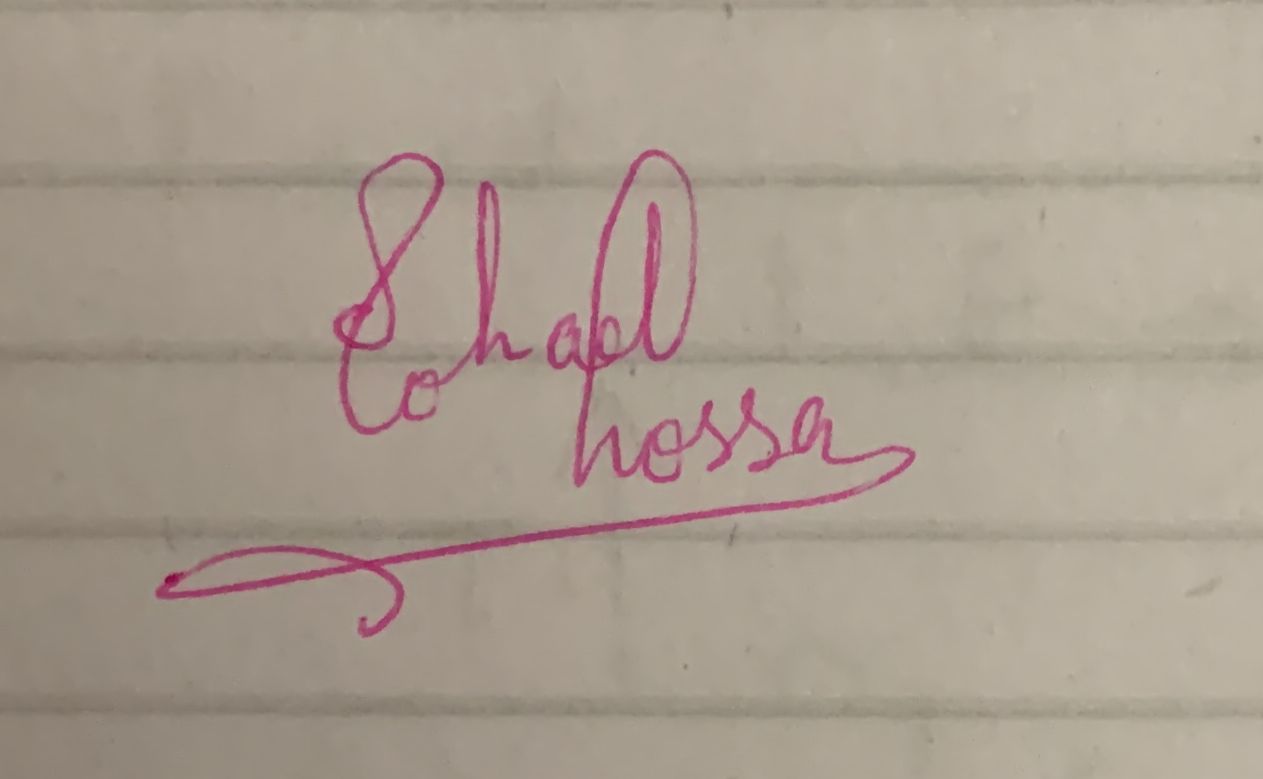 Sohael
hossa